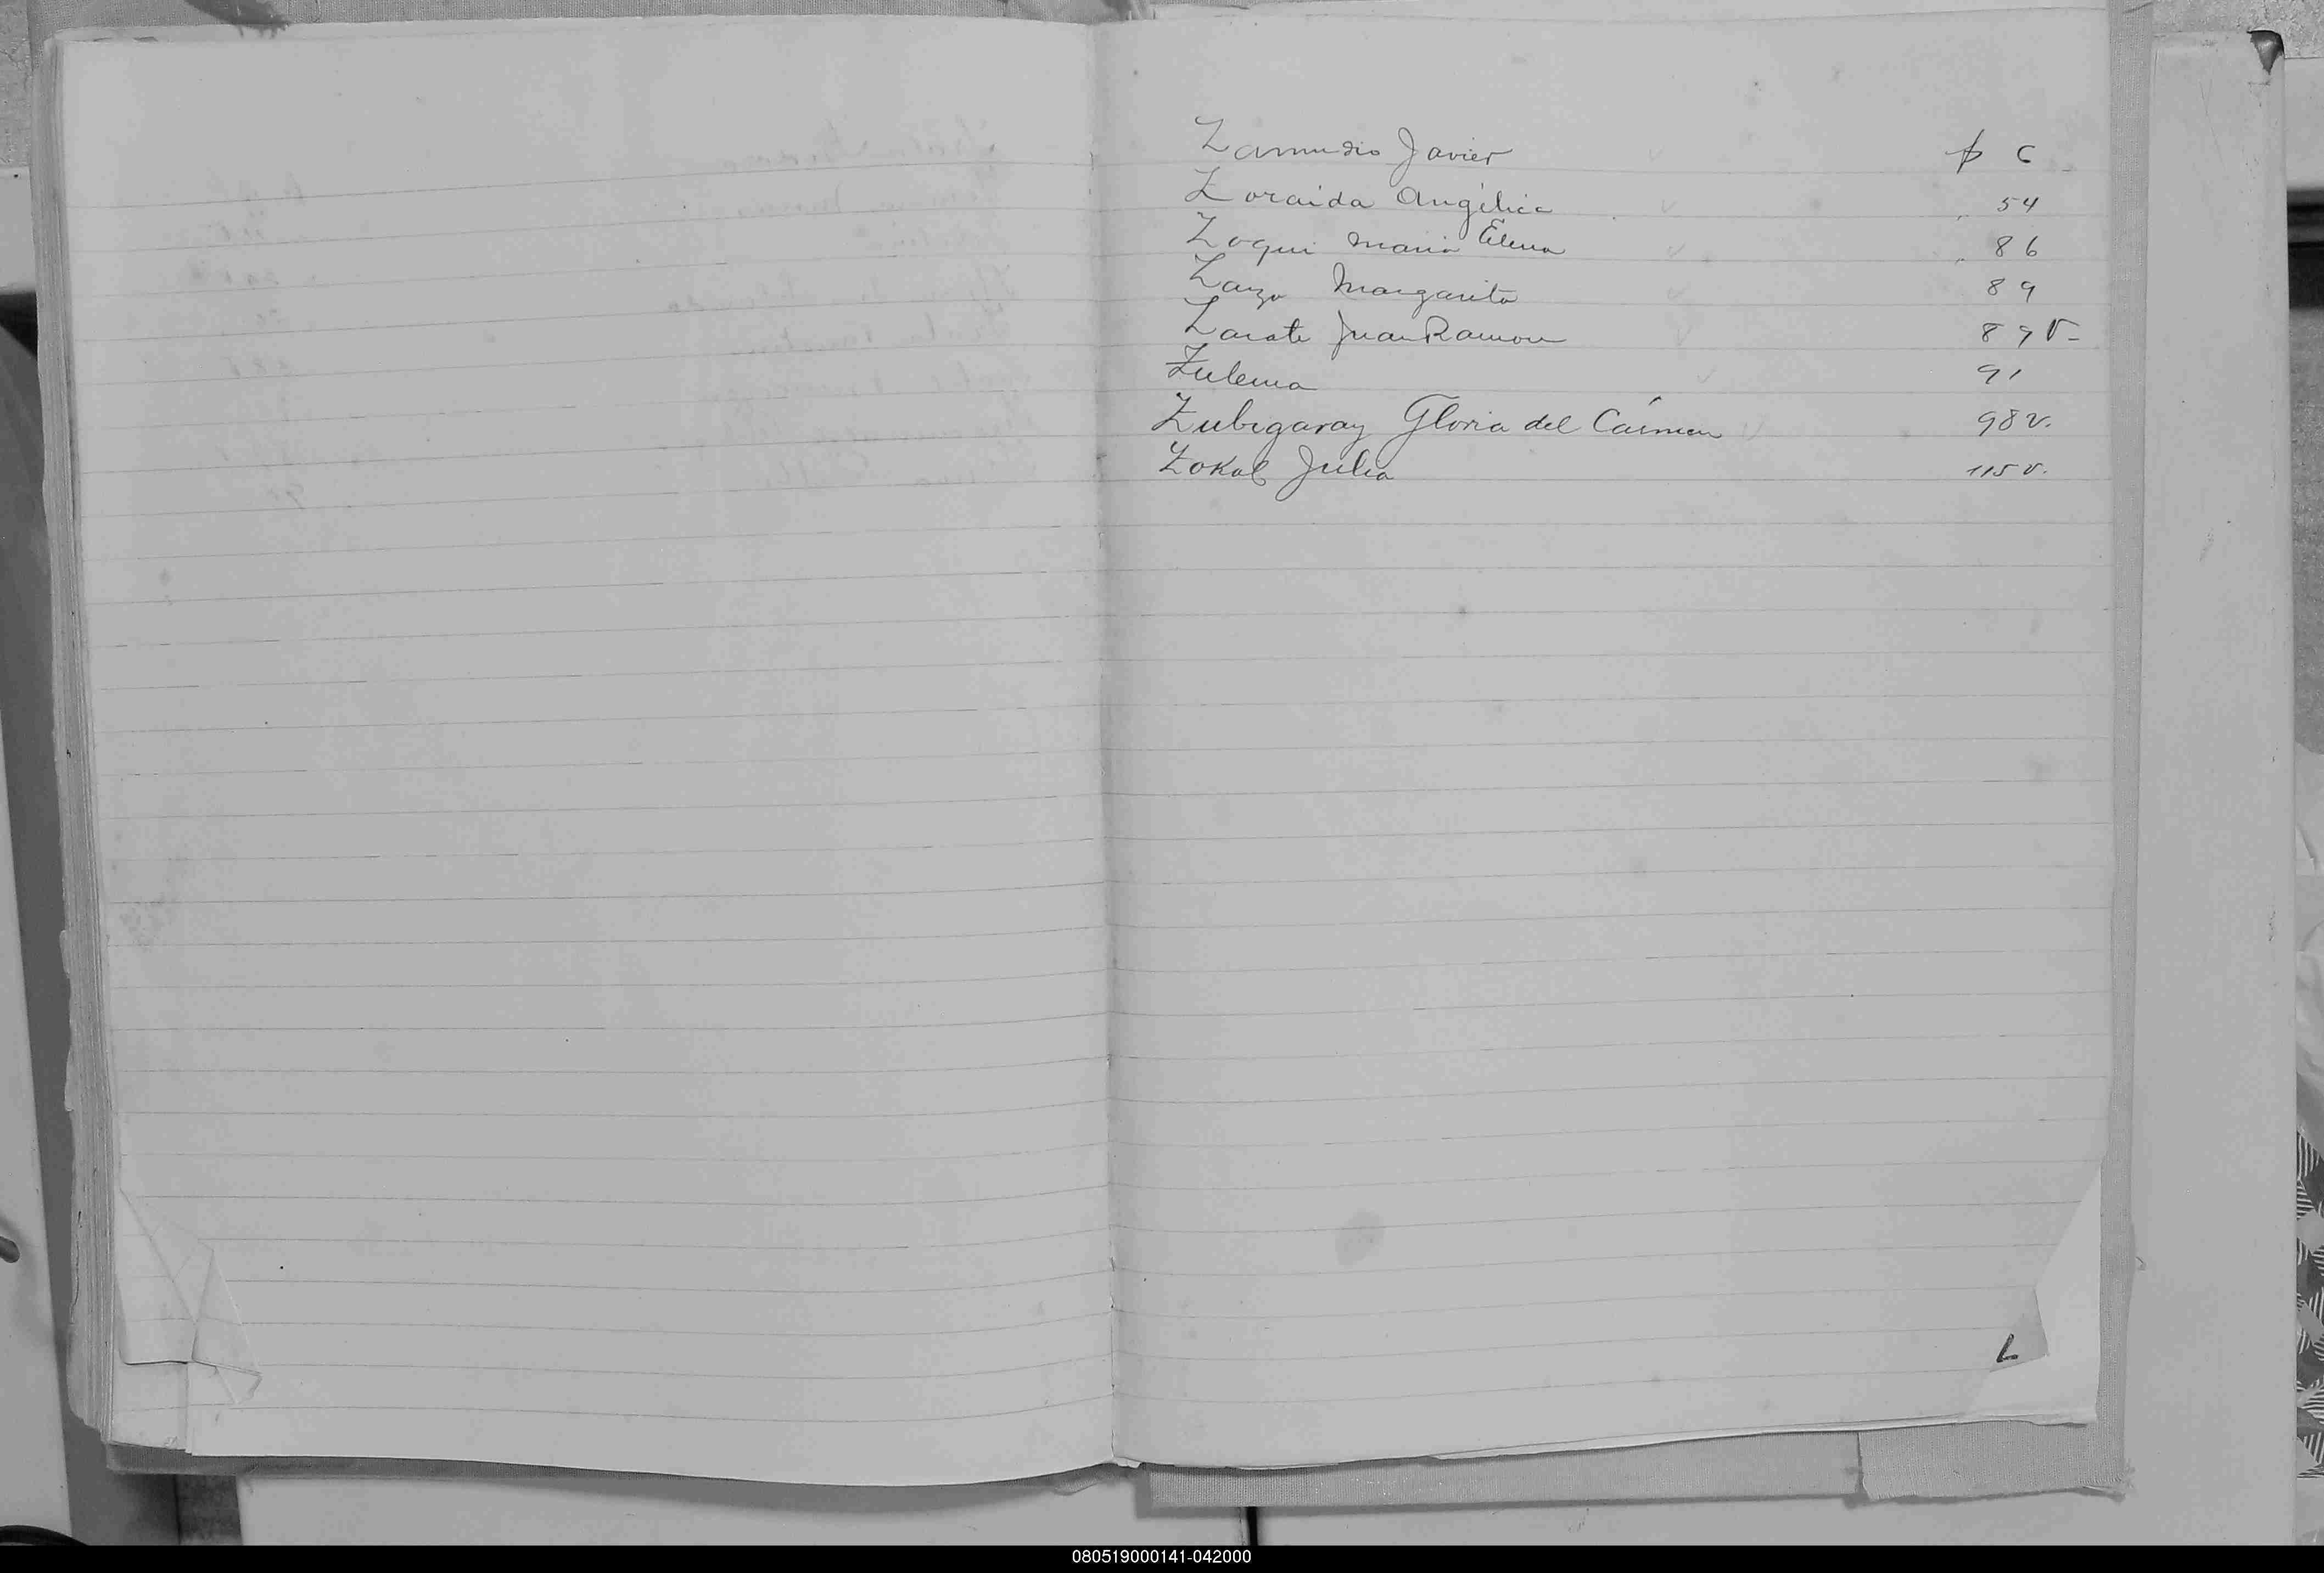 Zamudio Javier p 6
Zoraida Angélica 54
Zoqui Maria Elena 86
Zarza Margarita 89
Zarate Juan Ramon 89 v
Zulema 91
Zubigaray Gloria del Cármen 98 v.
Zokal Julia 115 v.
L
080519000141-042000